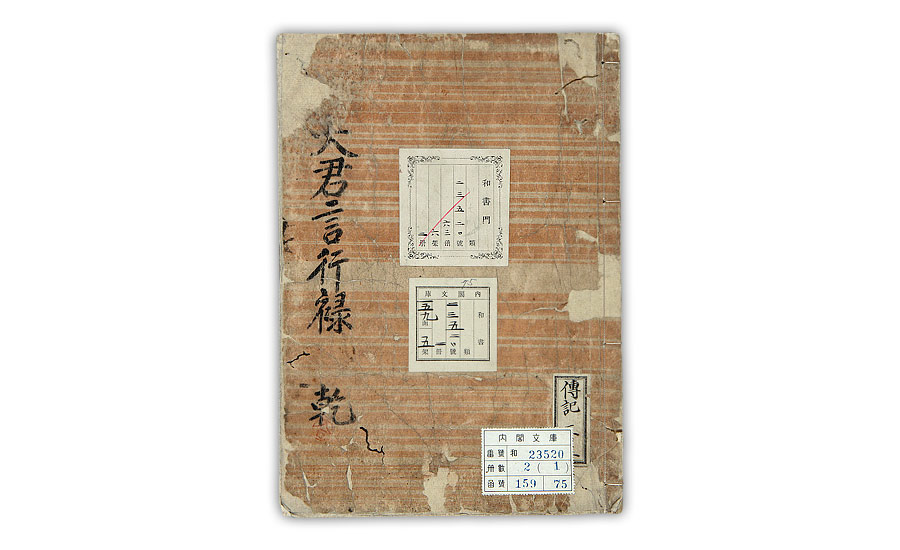 大君言行禄 乾
和書門
類
二三五二〇號
六三函
六架
二册
75
内閣文庫
和書
類
二三五二〇號
二册
五九函
五架
傳記
内閣文庫
番號 和 23520
册數 2 ( 1 )
函號 159 75